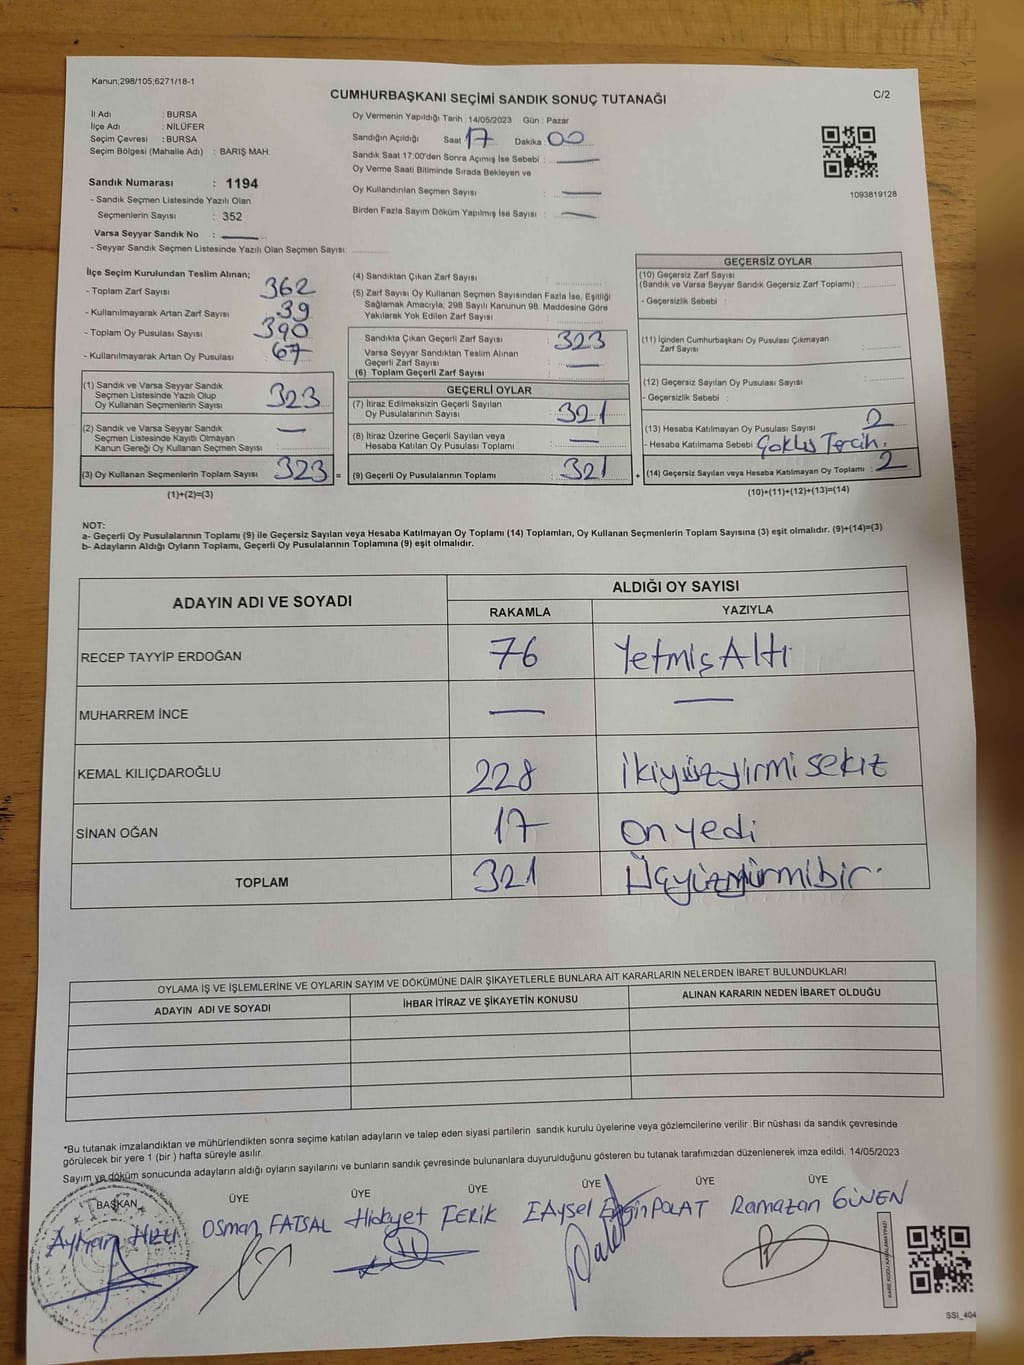 Kanun;298/105;6271/18-1
C/2
CUMHURBAŞKANI SEÇİMİ SANDIK SONUÇ TUTANAĞI
İl Adı : BURSA
İlçe Adı : NİLÜFER
Seçim Çevresi : BURSA
Seçim Bölgesi (Mahalle Adı) : BARIŞ MAH.
Sandık Numarası : 1194
- Sandık Seçmen Listesinde Yazılı Olan
Seçmenlerin Sayısı : 352
Varsa Seyyar Sandık No :
- Seyyar Sandık Seçmen Listesinde Yazılı Olan Seçmen Sayısı:
Oy Vermenin Yapıldığı Tarih : 14/05/2023 Gün : Pazar
Sandığın Açıldığı Saat 17 Dakika : 00
Sandık Saat 17:00'den Sonra Açımış İse Sebebi :
Oy Verme Saati Bitiminde Sırada Bekleyen ve
Oy Kullandırılan Seçmen Sayısı :
Birden Fazla Sayım Döküm Yapılmış İse Sayısı :
1093819128
İlçe Seçim Kurulundan Teslim Alınan;
- Toplam Zarf Sayısı : 362
- Kullanılmayarak Artan Zarf Sayısı : 39
- Toplam Oy Pusulası Sayısı : 390
- Kullanılmayarak Artan Oy Pusulası : 67
(1) Sandık ve Varsa Seyyar Sandık
Seçmen Listesinde Yazılı Olup
Oy Kullanan Seçmenlerin Sayısı : 323
(2) Sandık ve Varsa Seyyar Sandık
Seçmen Listesinde Kayıtlı Olmayan
Kanun Gereği Oy Kullanan Seçmen Sayısı :
(3) Oy Kullanan Seçmenlerin Toplam Sayısı : 323 =
(1)+(2)=(3)
(4) Sandıktan Çıkan Zarf Sayısı :
(5) Zarf Sayısı Oy Kullanan Seçmen Sayısından Fazla İse, Eşitliği
Sağlamak Amacıyla; 298 Sayılı Kanunun 98. Maddesine Göre
Yakılarak Yok Edilen Zarf Sayısı :
Sandıkta Çıkan Geçerli Zarf Sayısı : 323
Varsa Seyyar Sandıktan Teslim Alınan
Geçerli Zarf Sayısı :
(6) Toplam Geçerli Zarf Sayısı :
GEÇERLİ OYLAR
(7) İtiraz Edilmeksizin Geçerli Sayılan
Oy Pusulalarının Sayısı : 321
(8) İtiraz Üzerine Geçerli Sayılan veya
Hesaba Katılan Oy Pusulası Toplamı :
(9) Geçerli Oy Pusulalarının Toplamı : 321 +
GEÇERSİZ OYLAR
(10) Geçersiz Zarf Sayısı
(Sandık ve Varsa Seyyar Sandık Geçersiz Zarf Toplamı) :
- Geçersizlik Sebebi :
(11) İçinden Cumhurbaşkanı Oy Pusulası Çıkmayan
Zarf Sayısı :
(12) Geçersiz Sayılan Oy Pusulası Sayısı :
- Geçersizlik Sebebi :
(13) Hesaba Katılmayan Oy Pusulası Sayısı : 2
- Hesaba Katılmama Sebebi Çoklu Tercih.
(14) Geçersiz Sayılan veya Hesaba Katılmayan Oy Toplamı : 2
(10)+(11)+(12)+(13)=(14)
NOT:
a- Geçerli Oy Pusulalarının Toplamı (9) ile Geçersiz Sayılan veya Hesaba Katılmayan Oy Toplamı (14) Toplamları, Oy Kullanan Seçmenlerin Toplam Sayısına (3) eşit olmalıdır. (9)+(14)=(3)
b- Adayların Aldığı Oyların Toplamı, Geçerli Oy Pusulalarının Toplamına (9) eşit olmalıdır.
ADAYIN ADI VE SOYADI
ALDIĞI OY SAYISI
RAKAMLA YAZIYLA
RECEP TAYYİP ERDOĞAN 76 Yetmiş Altı
MUHARREM İNCE
KEMAL KILIÇDAROĞLU 228 İkiyüzyirmi sekiz
SİNAN OĞAN 17 on yedi
TOPLAM 321 Üçyüzyirmibir.
OYLAMA İŞ VE İŞLEMLERİNE VE OYLARIN SAYIM VE DÖKÜMÜNE DAİR ŞİKAYETLERLE BUNLARA AİT KARARLARIN NELERDEN İBARET BULUNDUKLARI
ADAYIN ADI VE SOYADI İHBAR İTİRAZ VE ŞİKAYETİN KONUSU ALINAN KARARIN NEDEN İBARET OLDUĞU
*Bu tutanak imzalandıktan ve mühürlendikten sonra seçime katılan adayların ve talep eden siyasi partilerin sandık kurulu üyelerine veya gözlemcilerine verilir .Bir nüshası da sandık çevresinde
görülecek bir yere 1 (bir ) hafta süreyle asılır.
Sayım ve döküm sonucunda adayların aldığı oyların sayılarını ve bunların sandık çevresinde bulunanlara duyurulduğunu gösteren bu tutanak tarafımızdan düzenlenerek imza edildi. 14/05/2023
BAŞKAN ÜYE ÜYE ÜYE ÜYE ÜYE ÜYE
Ayhan Hızlı Osman FATSAL Hidayet FERİK Aysel Engin POLAT Ramazan GÜVEN
KARE KODU KAPATMAYINIZ!
SSI_404